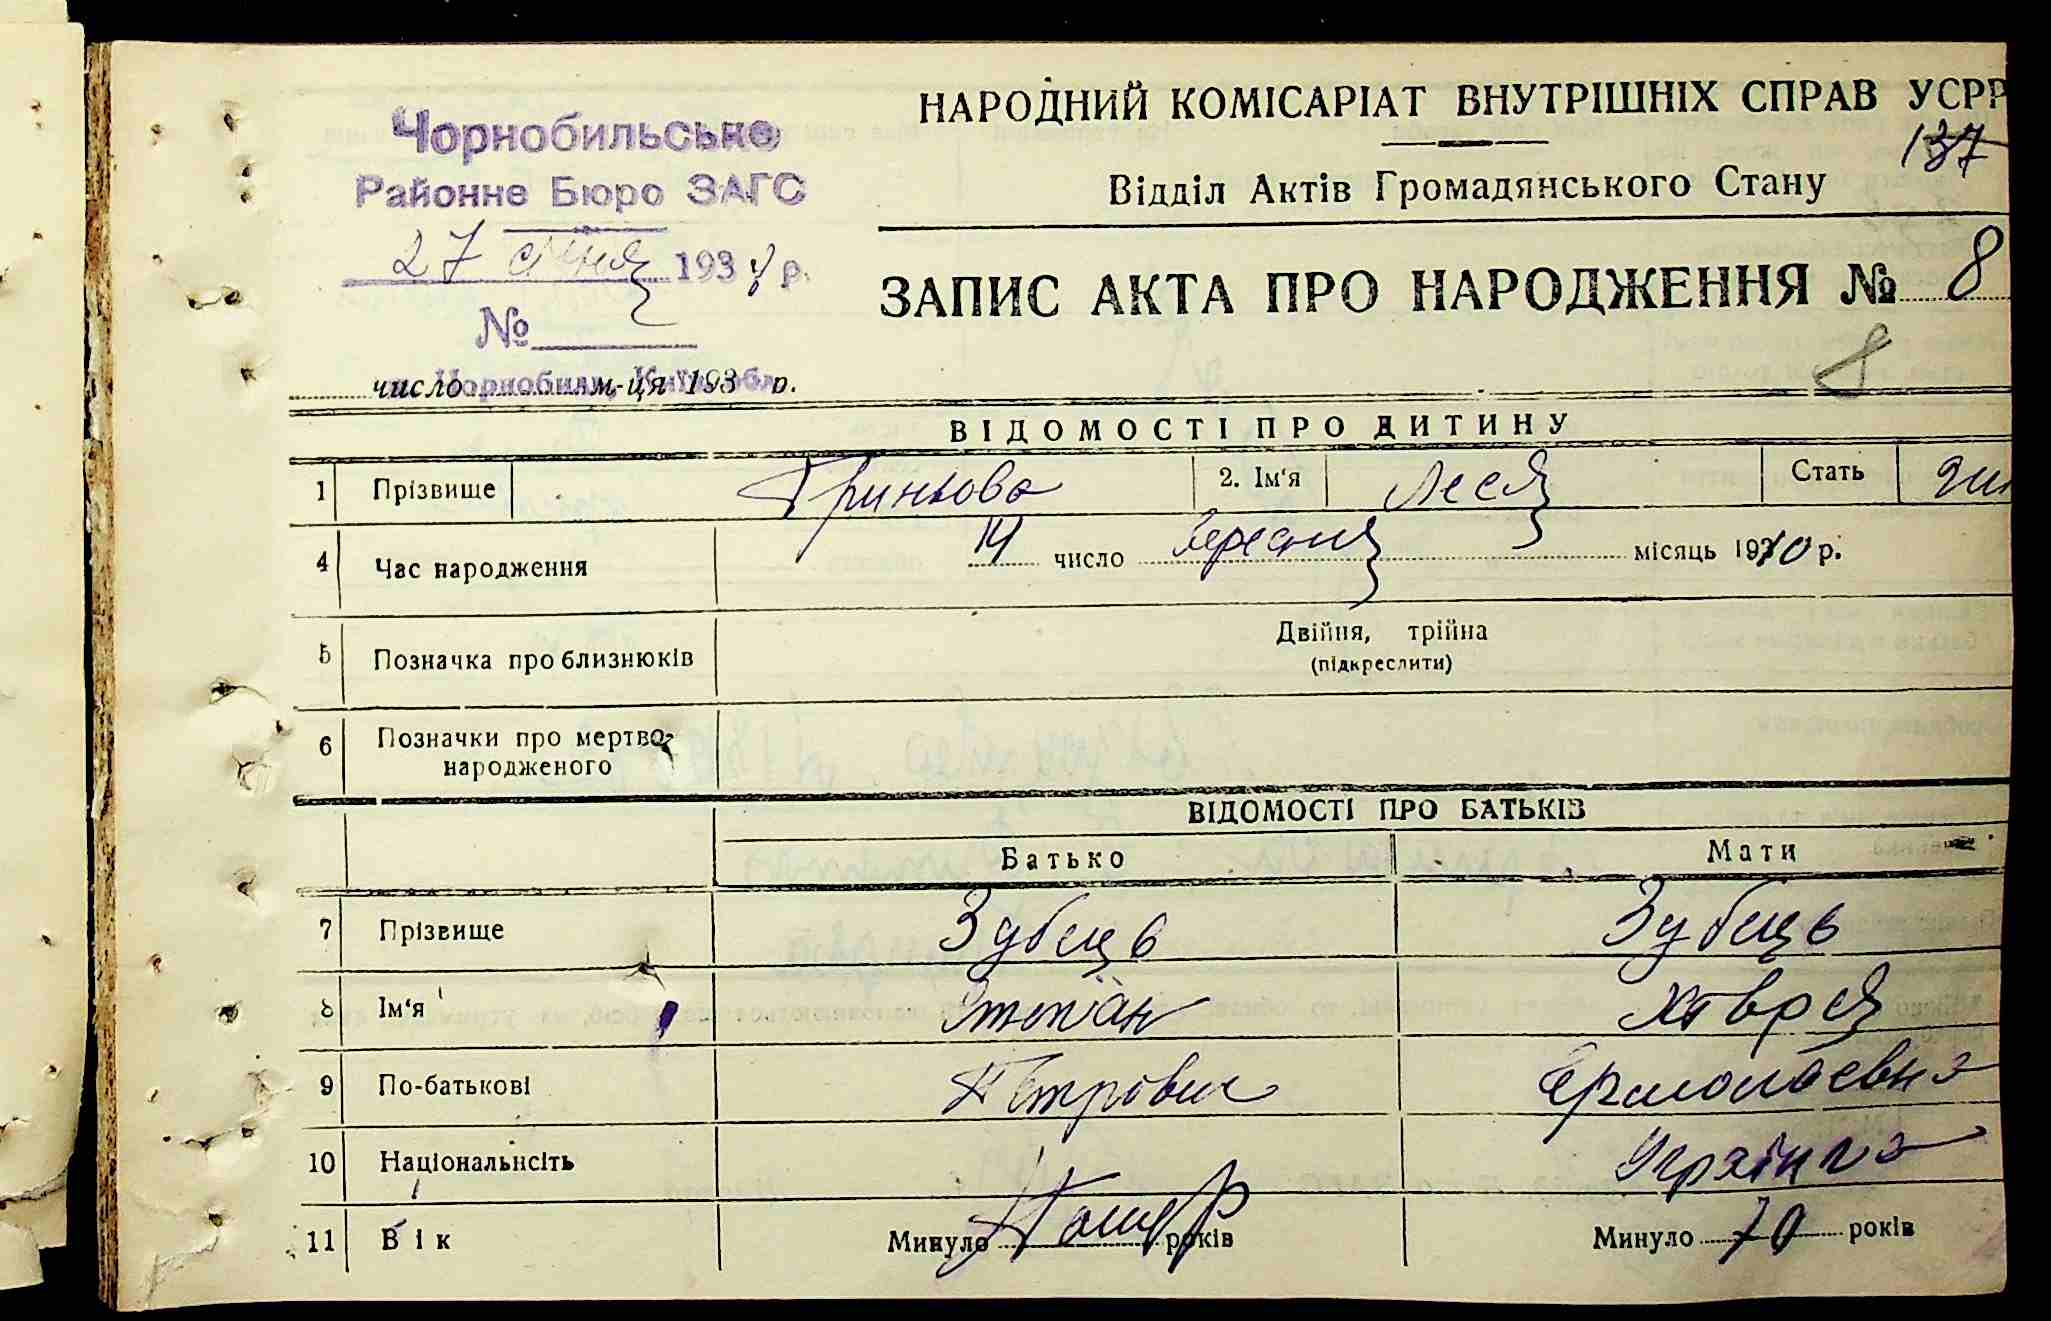 НАРОДНИЙ КОМІСАРІАТ ВНУТРІШНІХ СПРАВ УСРР
137
Чорнобильське
Районне Бюро ЗАГС
27 січня 1934 р.
№
Відділ Актів Громадянського Стану
ЗАПИС АКТА ПРО НАРОДЖЕННЯ № 8
8
число м-ця 193 р.
ВІДОМОСТІ ПРО ДИТИНУ
1 Прізвище Гриньова 2. Ім'я Леся Стать жін
4 Час народження 14 число вересня місяць 1910 р.
5 Позначка про близнюків Двійня, трійна
(підкреслити)
6 Позначки про мертво-
народженого
ВІДОМОСТІ ПРО БАТЬКІВ
Батько Мати
7 Прізвище Зубець Зубець
8 Ім'я Степан Хівря
9 По-батькові Петрович Ермолаевна
10 Національнсіть Українка
11 Вік Минуло Помер років Минуло 70 років